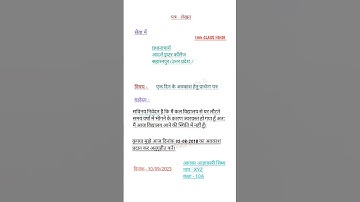 पत्र - लेखन
सेवा में
10th CLASS HINDI
प्रधानाचार्य
आदर्श इन्टर कॉलेज
सहारनपुर (उत्तर प्रदेश)
विषय - एक दिन के अवकाश हेतु प्रार्थना पत्र
महोदय-
सविनय निवेदन है कि मैं कल विद्यालय से घर लौटते
समय वर्षा में भीगने के कारण ज्वरग्रस्त हो गया हूँ अतः
मैं आज विद्यालय आने की स्थिति में नहीं हूँ।
कृपया मुझे आज दिनांक का अवकाश
प्रदान कर अनुगृहीत करें।
दिनांक - 10/09/2023
आपका आज्ञाकारी शिष्य
नाम - XYZ
कक्षा - 10A